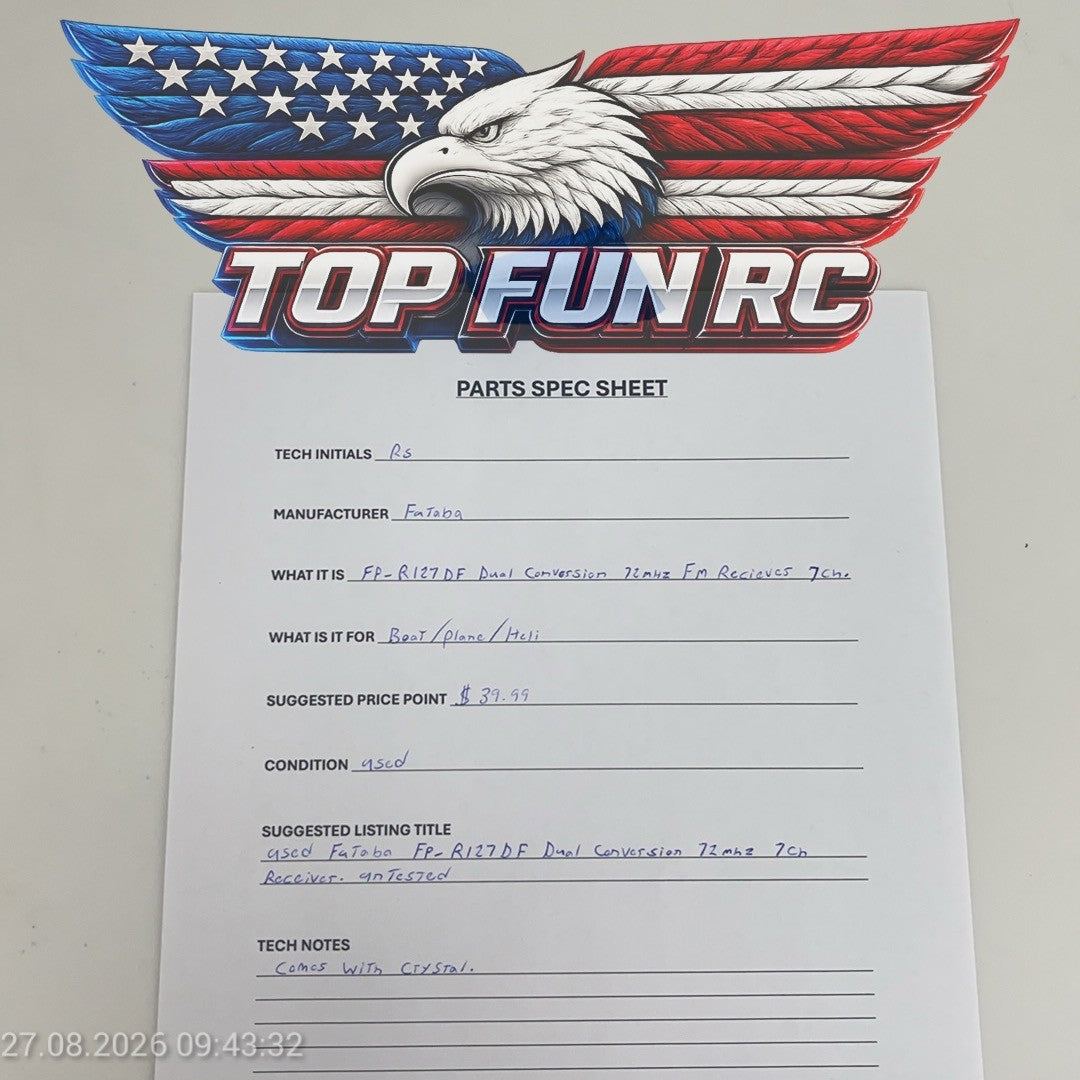 TOP FUN RC
PARTS SPEC SHEET
TECH INITIALS Rs
MANUFACTURER FuTaba
WHAT IT IS FP-R127DF Dual Conversion 72mHz Fm Reciever 7ch.
WHAT IS IT FOR Boat/plane/Heli
SUGGESTED PRICE POINT $39.99
CONDITION used
SUGGESTED LISTING TITLE
used FuTaba FP-R127DF Dual Conversion 72mhz 7ch
Receiver. unTested
TECH NOTES
Comes with Crystal.
27.08.2026 09:43:32